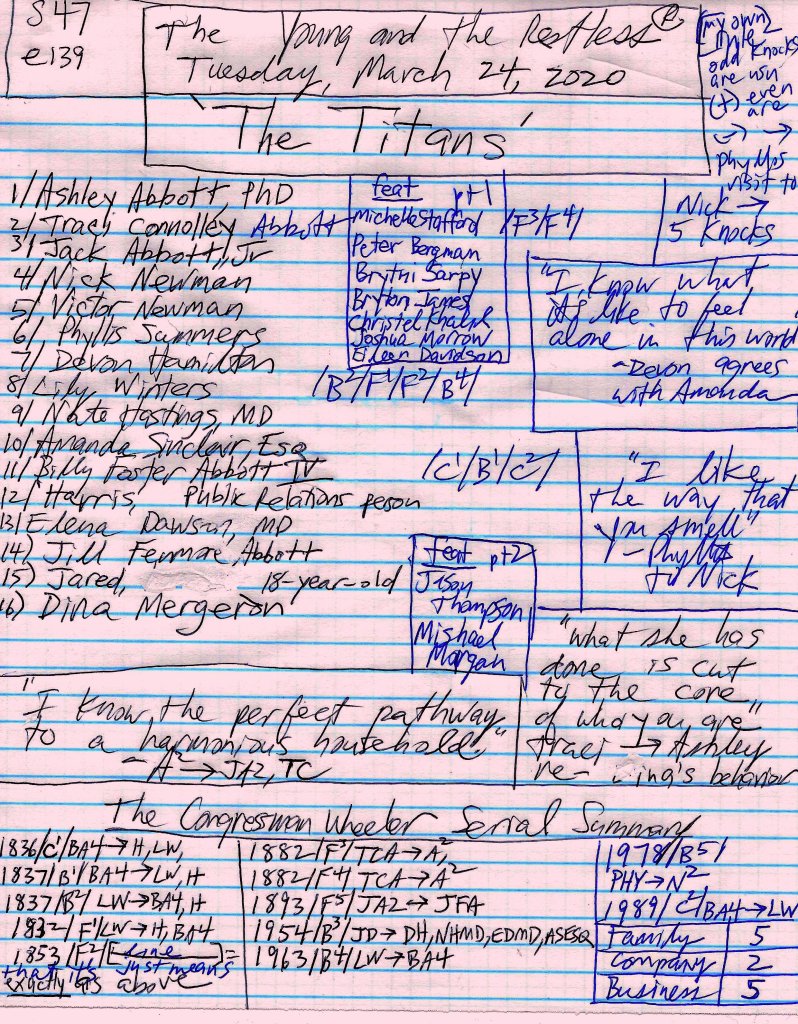 S47
e139
The Young and the Restless®
Tuesday, March 24, 2020
'The Titans'
(my own)
note
odd knocks
are usu
(+) even
are
(-) →
Phyllis
visit to
Nick →
5 Knocks
1/ Ashley Abbott, PhD
2/ Traci Connolley Abbott
3/ Jack Abbott, Jr
4/ Nick Newman
5/ Victor Newman
6/ Phyllis Summers
7/ Devon Hamilton
8/ Lily Winters
9/ Nate Hastings, MD
10/ Amanda Sinclair, Esq
11/ Billy Foster Abbott IV
12/ Harris, Public Relations person
13/ Elena Dawson, MD
14) Jill Fenmore Abbott
15) Jared, 18-year-old
16) Dina Mergeron
feat pt1
Michelle Stafford
Peter Bergman
Brytni Sarpy
Bryton James
Christel Khalil
Joshua Morrow
Eileen Davidson
/F³/F⁴/
/B²/F¹/F²/B⁴/
/C¹/B¹/C²/
"I know what
it's like to feel
alone in this world
~Devon agrees
with Amanda
"I like
the way that
you smell"
- Phyllis
to Nick
feat pt2
Jason
Thompson
Mishael
Morgan
"what she has
done is cut
to the core
of who you are"
Traci → Ashley
re- Dina's behavior
"I know the perfect pathway
to a harmonious household."
- A² → JA2, TC
The Congressman Wheeler Serial Summary
1836/C¹/BA4→H, LW,
1837/B¹/BA4→LW, H
1837/B²/ LW→BA4, H
1832/F¹/LW→H, BA4
1853/F²/[Line]=
that it's just means
exactly as above
1882/F³/TCA→A²
1882/F⁴/TCA→A²
1893/F⁵/JA2→JFA
1954/B³/JD→DH, NHMD, EDMD, ASESQ
1963/B⁴/LW→BA4
1978/B⁵/
PHY→N²
1989/C²/BA4→LW
Family 5
Company 2
Business 5